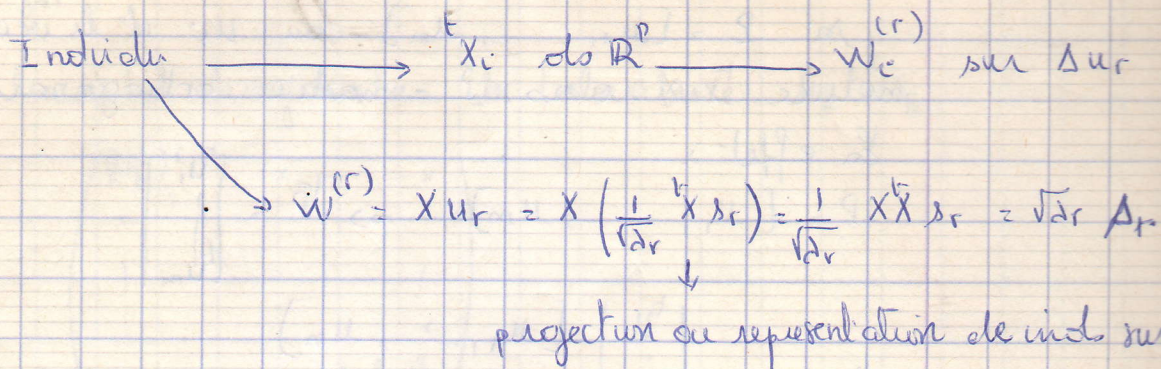 Individu → ᵗXᵢ ds ℝᵖ → Wᵢ⁽ʳ⁾ sur Δuᵣ
W⁽ʳ⁾ = X uᵣ = X (1/√λᵣ ᵗX sᵣ) = 1/√λᵣ XᵗX sᵣ = √λᵣ sᵣ
projection ou représentation de ind. su